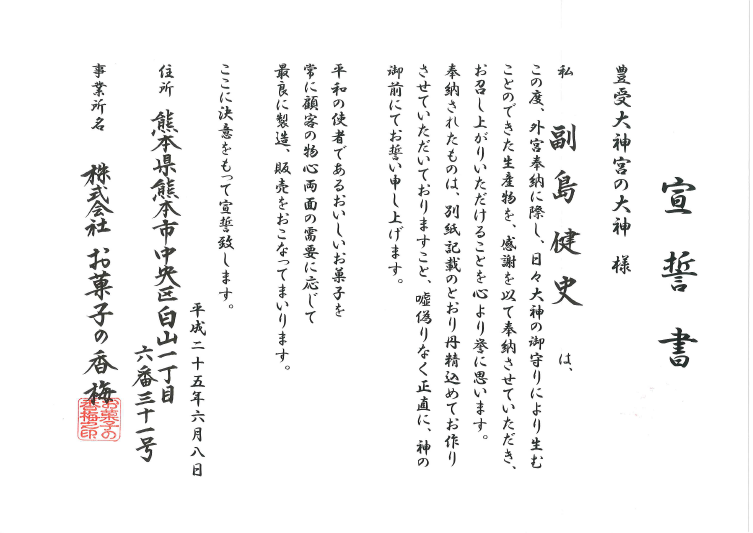 宣誓書
豊受大神宮の大神 様
私 副島健史 は、
この度、外宮奉納に際し、日々大神の御守りにより生む
ことのできた生産物を、感謝を以て奉納させていただき、
お召し上がりいただけることを心より誉に思います。
奉納されたものは、別紙記載のとおり丹精込めてお作り
させていただいておりますこと、嘘偽りなく正直に、神の
御前にてお誓い申し上げます。
平和の使者であるおいしいお菓子を
常に顧客の物心両面の需要に応じて
最良に製造、販売をおこなってまいります。
ここに決意をもって宣誓致します。
平成二十五年六月八日
住所 熊本県熊本市中央区白山一丁目
六番三十一号
事業所名 株式会社 お菓子の香梅
お菓子の
香梅之印